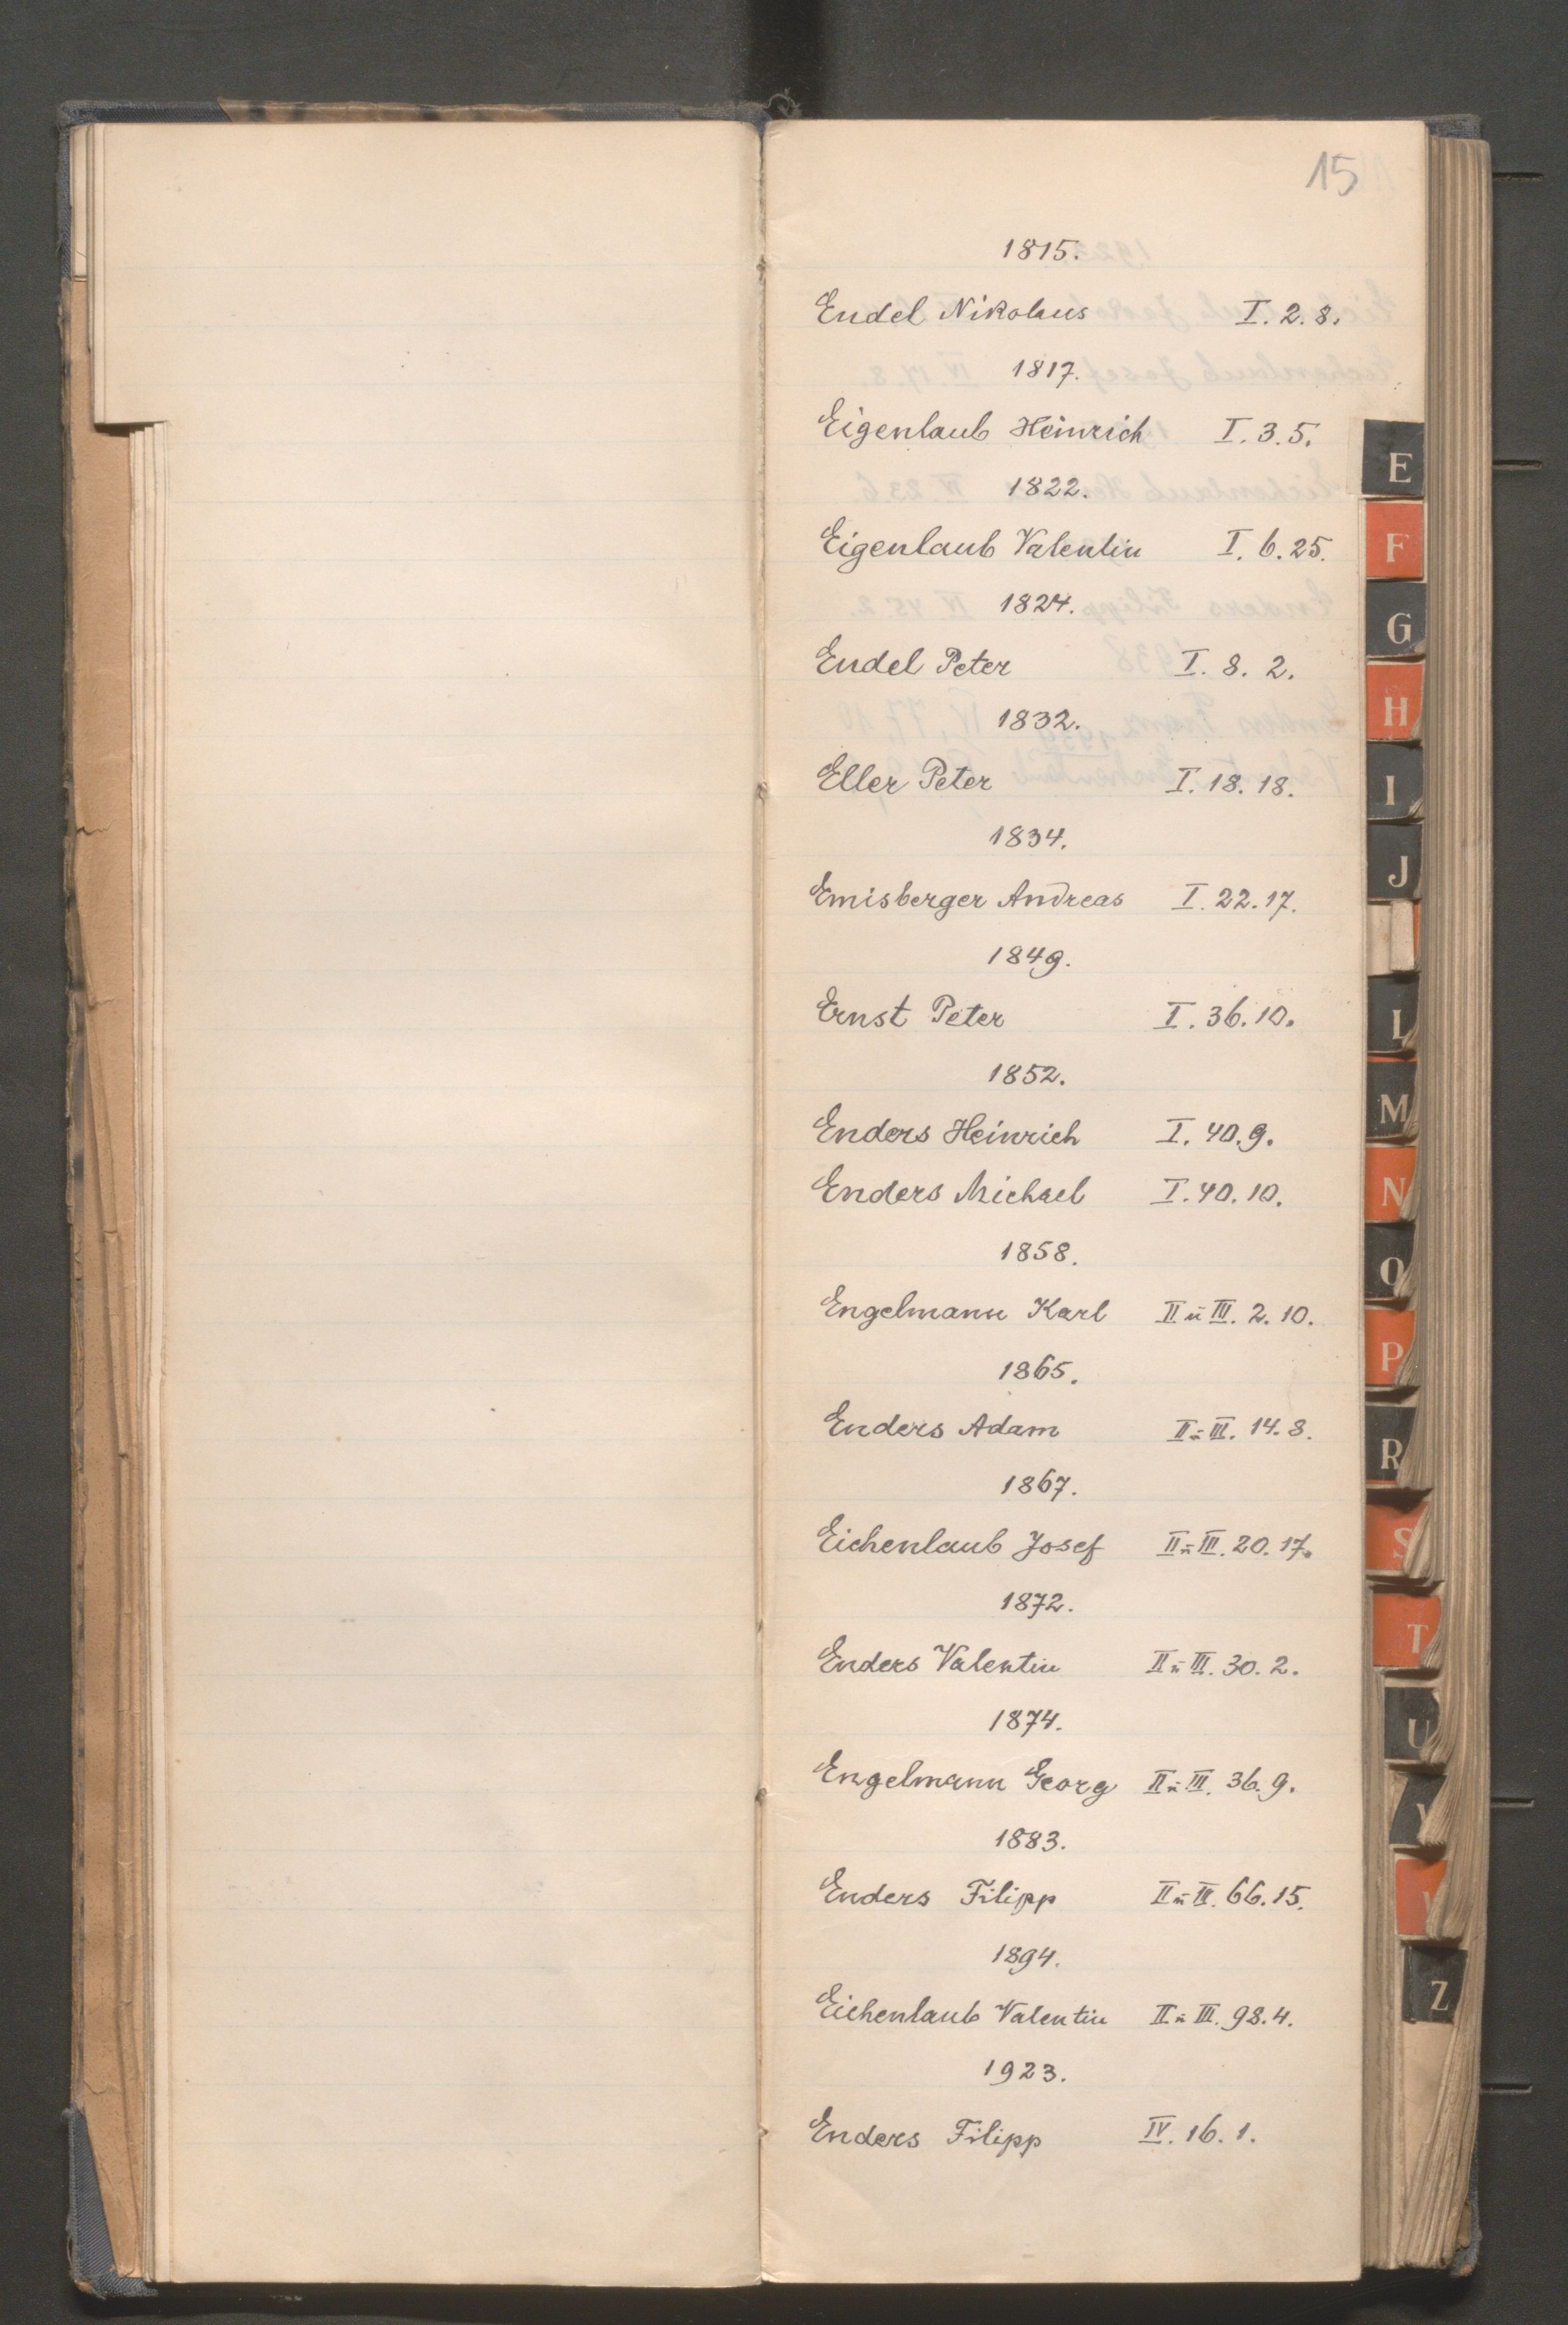 15
1815.
Endel Nikolaus I. 2. 8.
1817.
Eigenlaub Heinrich I. 3. 5.
1822.
Eigenlaub Valentin I. 6. 25.
1824.
Endel Peter I. 8. 2.
1832.
Eller Peter I. 18. 18.
1834.
Emisberger Andreas I. 22. 17.
1849.
Ernst Peter I. 36. 10.
1852.
Enders Heinrich I. 40. 9.
Enders Michael I. 40. 10.
1858.
Engelmann Karl II u III. 2. 10.
1865.
Enders Adam II u III. 14. 8.
1867.
Eichenlaub Josef II u III. 20. 17.
1872.
Enders Valentin II u III. 30. 2.
1874.
Engelmann Georg II u III. 36. 9.
1883.
Enders Filipp II u III. 66. 15.
1894.
Eichenlaub Valentin II u III. 98. 4.
1923.
Enders Filipp IV. 16. 1.
E
F
G
H
I
J
L
M
N
O
P
R
S
T
U
Z